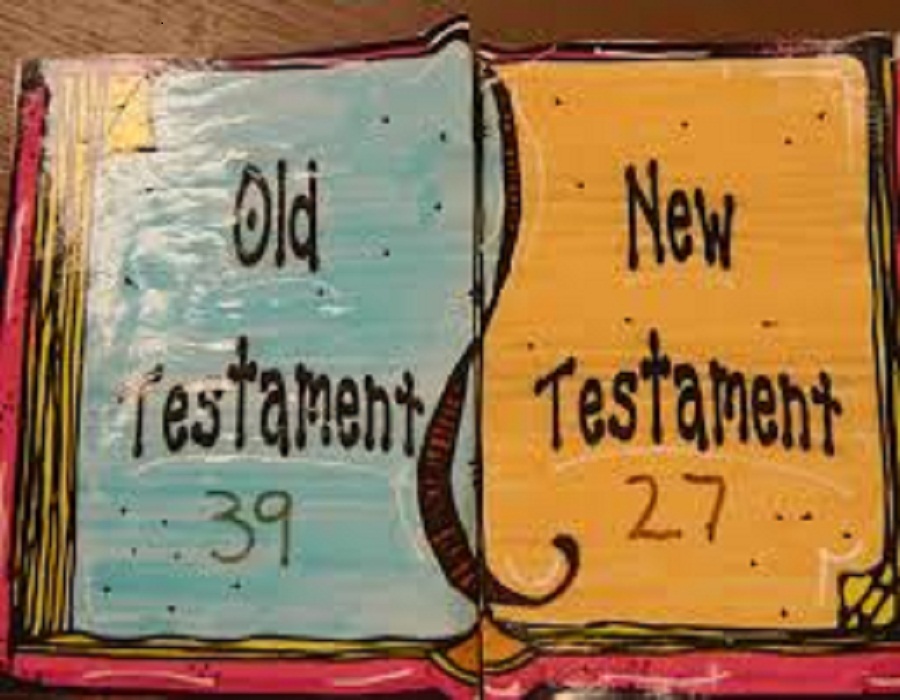 Old
Testament
39
New
Testament
27